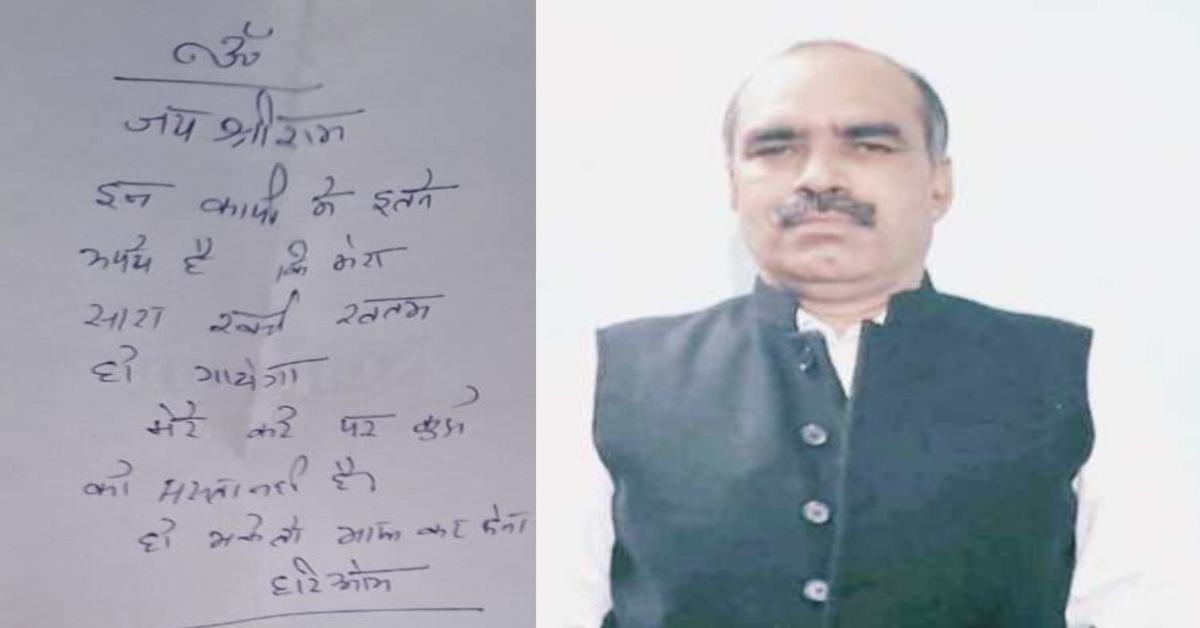 ॐ
जय श्री राम
इन कापी मे इतने
रूपये है कि मेरा
सारा खर्चा खतम
हो जायेगा
मेरे करे पर
को नही है।
हो सके तो माफ कर देना
हरि ओम